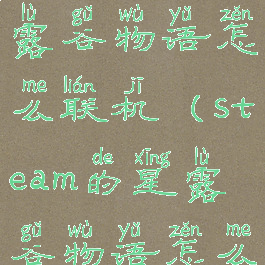 lù gǔ wù yǔ zěn
露谷物语怎
me lián jī
么联机(st
de xīng lù
eam的星露
gǔ wù yǔ zěn me
谷物语怎么